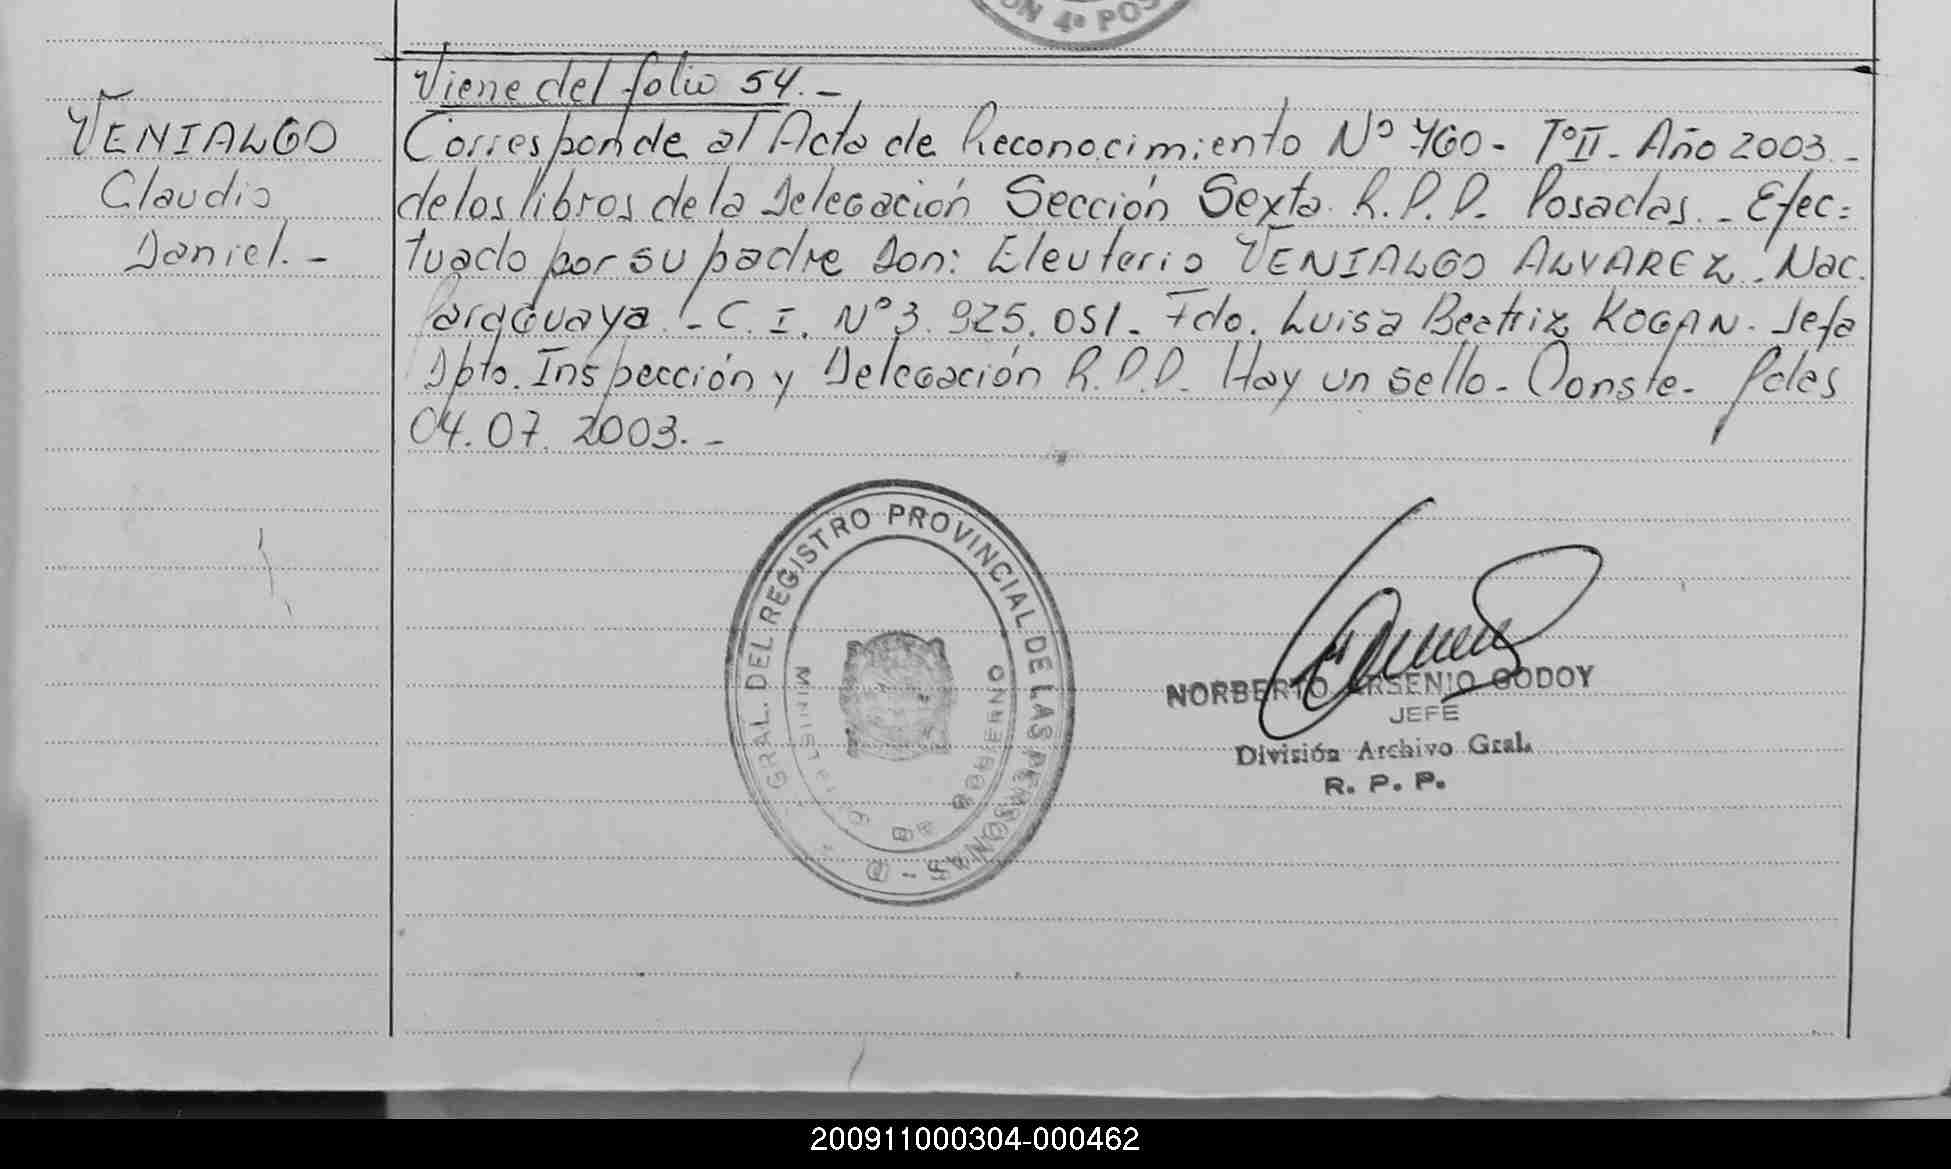 ON 4º POS
Viene del folio 54.-
VENIALGO
Claudio
Daniel.-
Corresponde al Acta de Reconocimiento Nº 460- TºII- Año 2003.-
de los libros de la Delegación Sección Sexta. R.P.P. Posadas.- Efec=
tuado por su padre Don: Eleuterio VENIALGO ALVAREZ. Nac.
Paraguaya.- C.I. Nº 3.925.051- Fdo. Luisa Beatriz KOGAN. Jefa
Dpto. Inspección y Delegación R.P.P. Hay un sello- Conste- Pdas
04.07.2003.-
GRAL. DEL REGISTRO PROVINCIAL DE LAS PERSONAS
GOBIERNO
NORBERTO ARSENIO GODOY
JEFE
División Archivo Gral.
R. P. P.
200911000304-000462